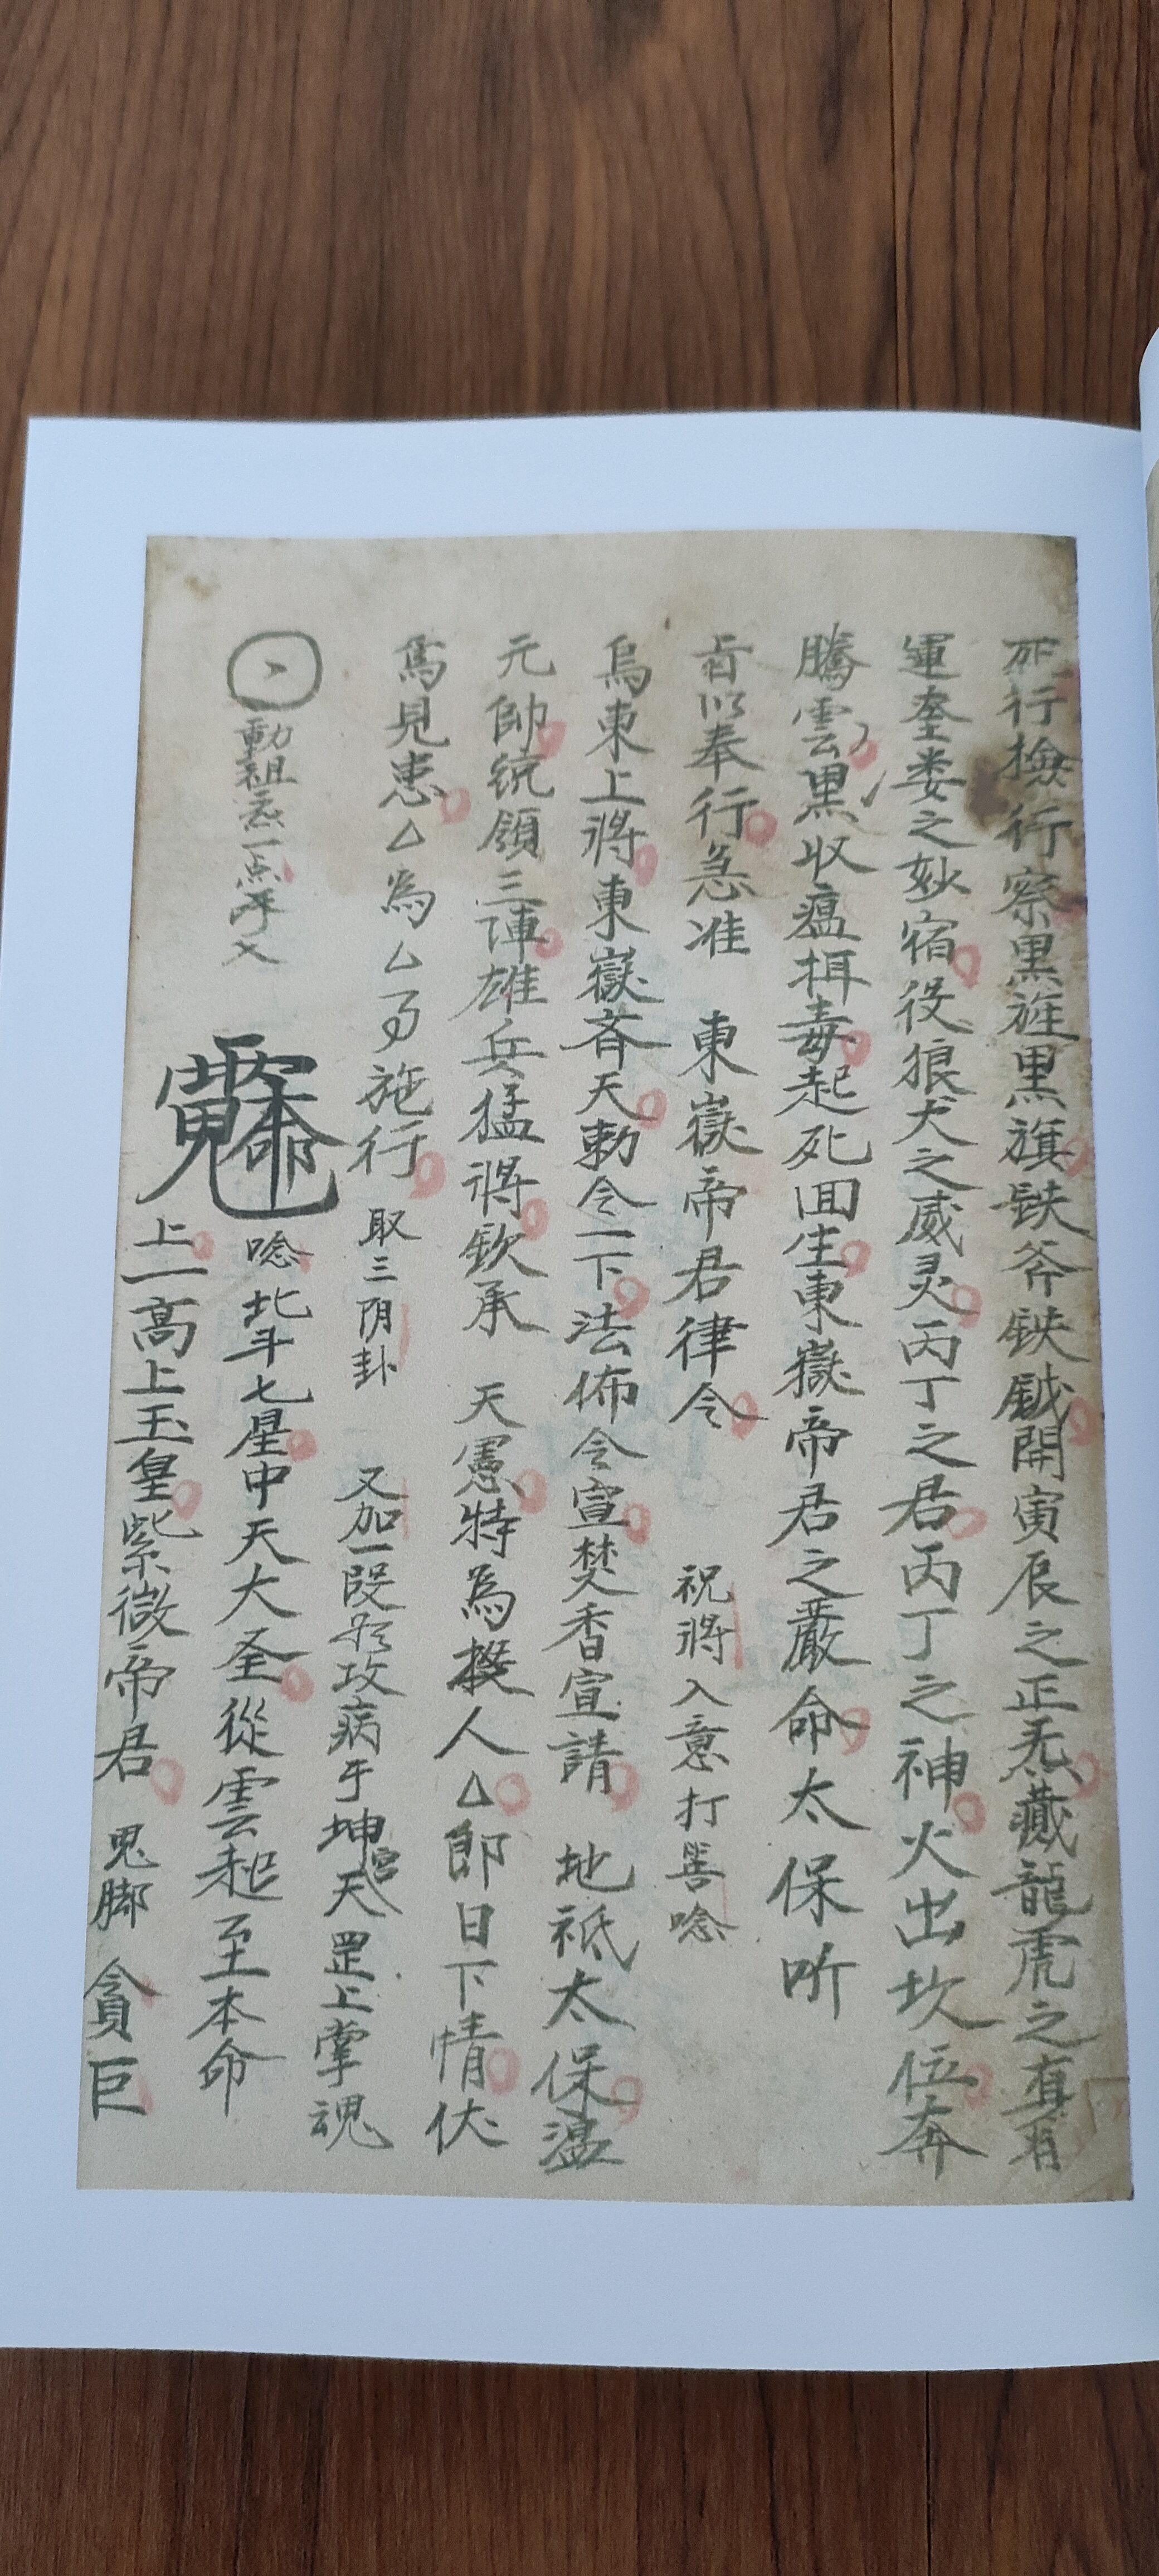 行檢行察黒旌黒旗鈇斧鈇鉞開寅辰之正炁藏龍虎之直符
運奎娄之妙宿役狼犬之威灵丙丁之君丙丁之神火出坎位奔
騰雲黒収瘟揖毒起死囬生東嶽帝君之嚴命太保听
旨以奉行急准 東嶽帝君律令 祝將入意打 唸
烏東上將東嶽斉天勅令一下法佈令宣焚香宣請 地祇太保溫
元帥統領三
雄兵猛將欽承 天憲特為投人△即日下情伏
為見患△為△ 施行 取三阴卦 又加一段 攻病于坤宮天罡上掌魂
動祖炁一点 唸北斗七星中天大圣從雲起至本命
上一高上玉皇紫微帝君 鬼脚 貪巨